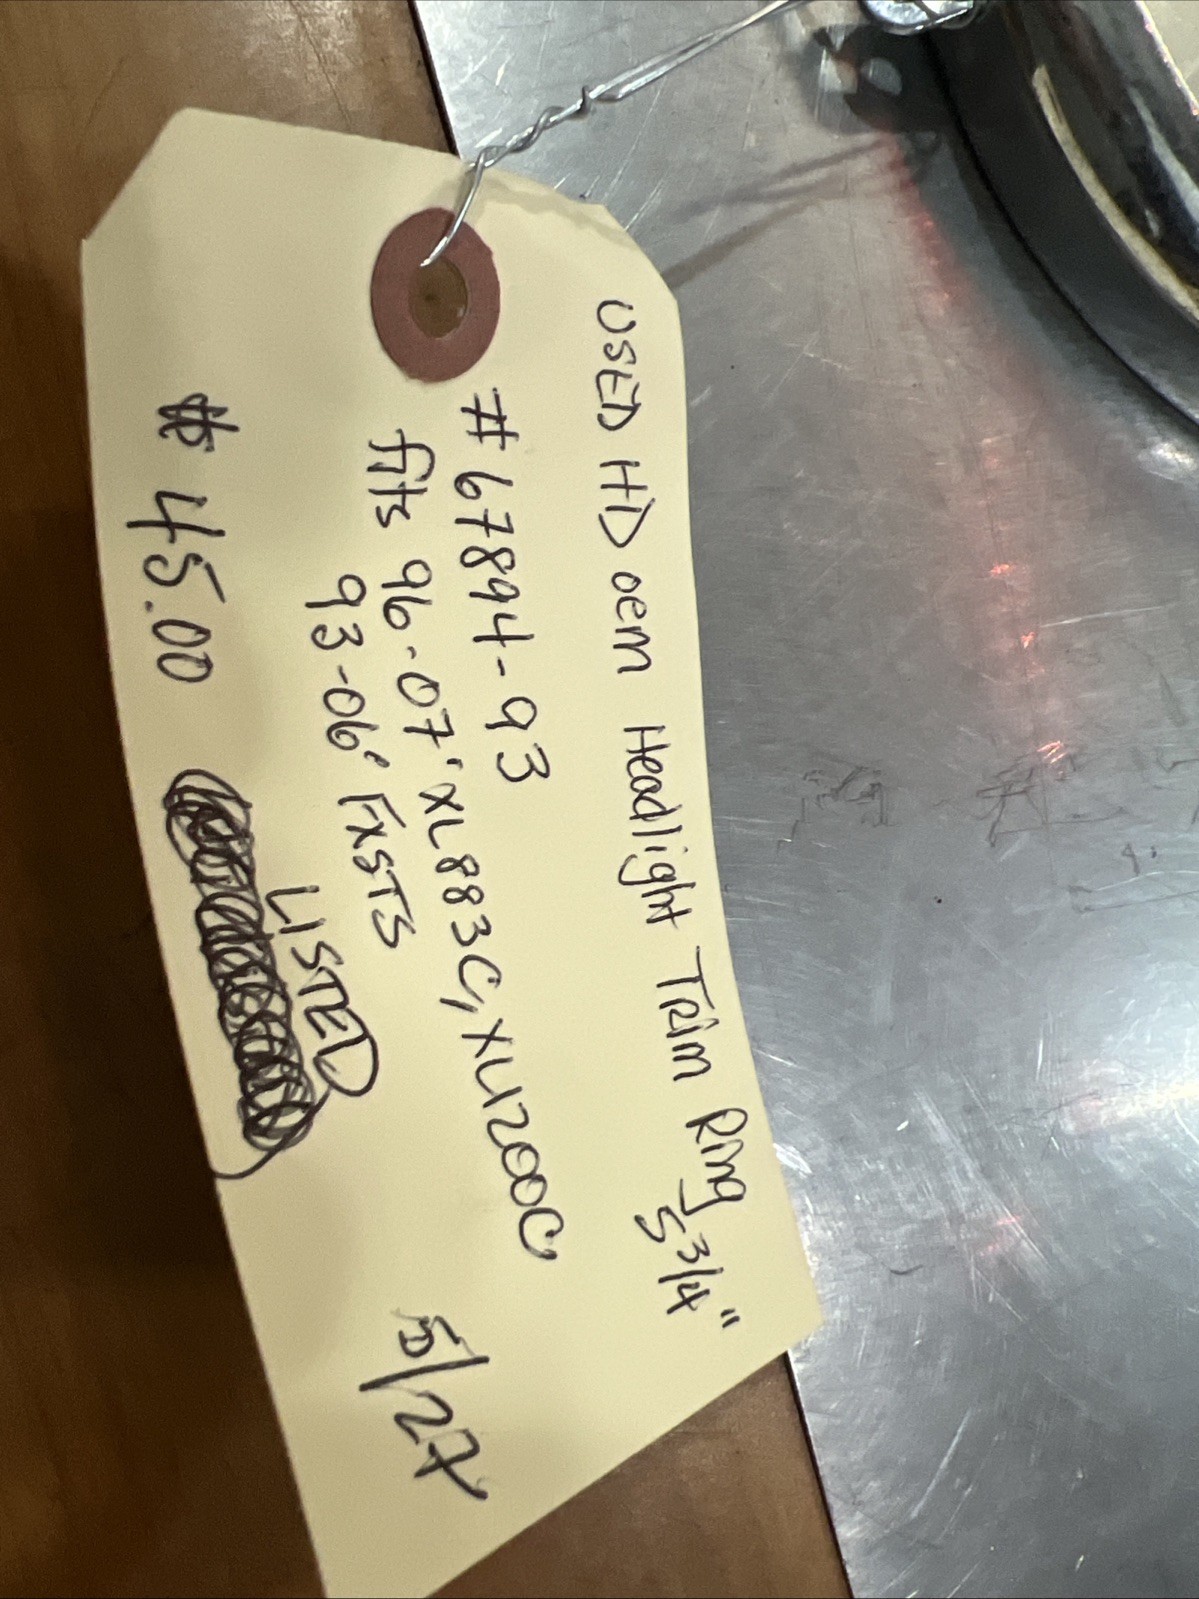 USED HD oem Headlight Trim Ring
5 3/4"
# 67894-93
fits 96-07' XL883C, XL1200C
93-06' FXSTS
LISTED
5/27
$ 45.00